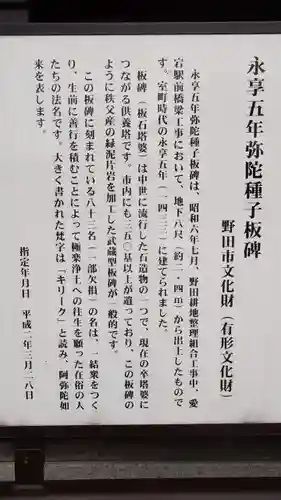 永享五年弥陀種子板碑
野田市文化財（有形文化財）
永享五年弥陀種子板碑は、昭和六年七月、野田耕地整理組合工事中、愛
宕駅前橋梁工事において、地下八尺（約二・四m）から出土したもので
す。室町時代の永享五年（一四三三）に建てられました。
板碑（板石塔婆）は中世に流行した石造物の一つで、現在の卒塔婆に
つながる供養塔です。市内にも三五〇基以上が遺っており、この板碑の
ように秩父産の緑泥片岩を加工した武蔵型板碑が一般的です。
この板碑に刻まれている八十三名（一部欠損）の名は、一結衆をつく
り、生前に善行を積むことによって極楽浄土への往生を願った在俗の人
たちの法名です。大きく書かれた梵字は「キリーク」と読み、阿弥陀如
来を表します。
指定年月日　平成二年三月二八日